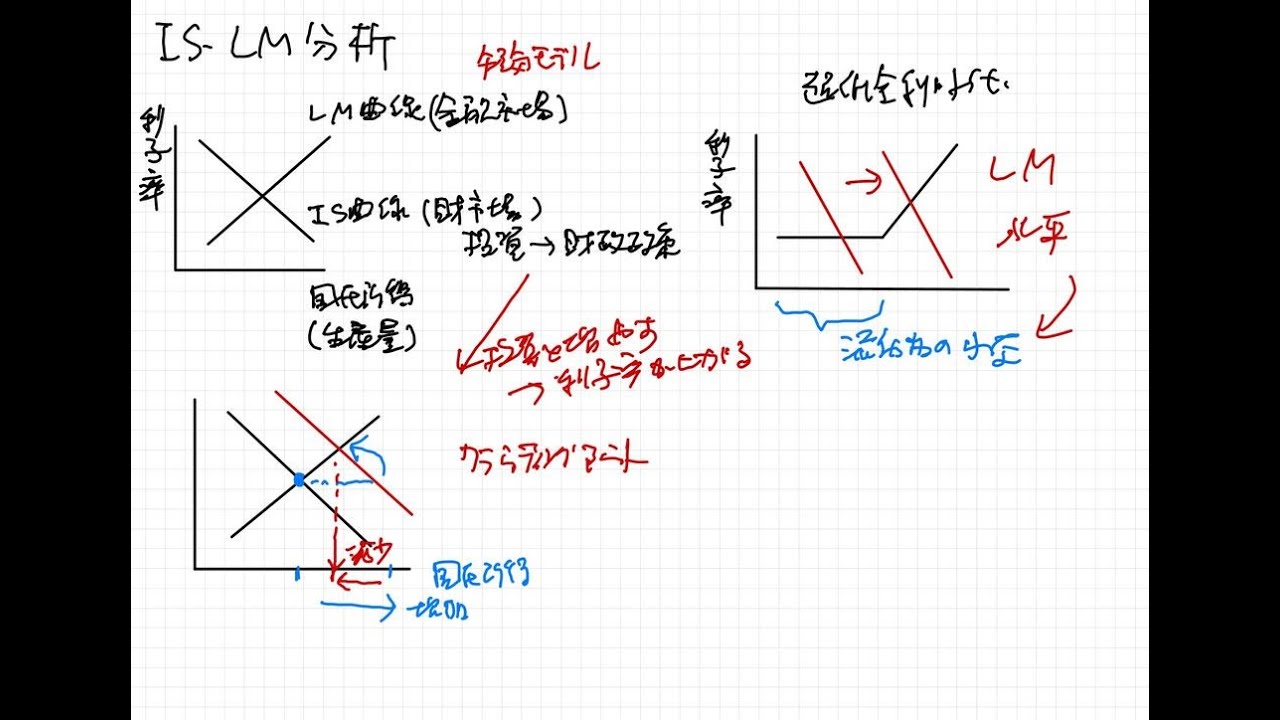 IS-LM分析
モデル
LM曲線(金融市場)
利子率
IS曲線(財市場)
投資→財政政策
国民所得
(生産量)
投資を増やす
→利子率が上がる
クラウディングアウト
減少
国民所得
増加
利子率
LM
水平